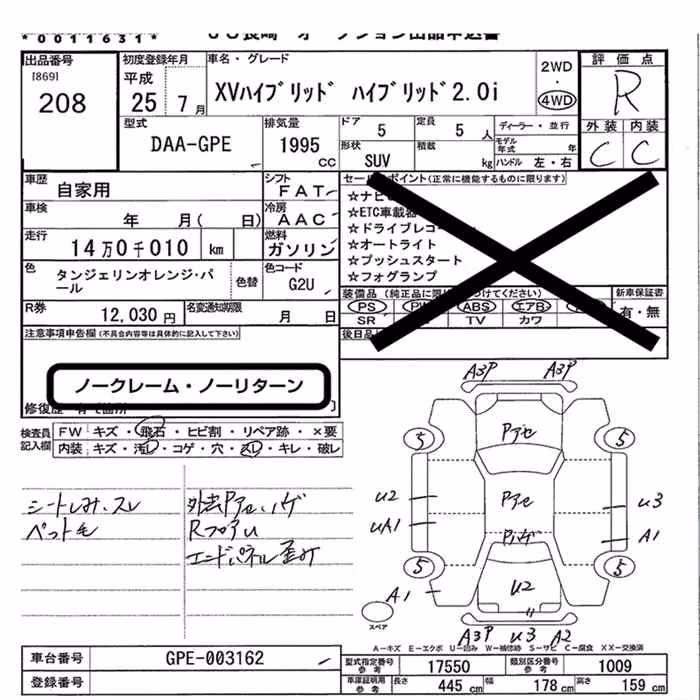 *0011631*
出品番号
[869]
208
初度登録年月
平成
25 7月
車名・グレード
XVハイブリッド ハイブリッド2.0i
2WD
・
4WD
評価点
R
外装 内装
C C
型式
DAA-GPE
排気量
1995
cc
ドア
5
定員
5 人
形状
SUV
積載
kg
ディーラー・並行
モデル年式
年
ハンドル 左・右
車歴
自家用
シフト
FAT
車検
年 月( 日)
冷房
AAC
走行
14万0千010 km
燃料
ガソリン
色
タンジェリンオレンジ・パール
色替
色コード
G2U
R券
12,030円
名変通知期限
月 日
セールスポイント(正常に機能するものに限ります)
☆ナビ
☆ETC車載器
☆ドライブレコー
☆オートライト
☆プッシュスタート
☆フォグランプ
装備品
新車保証書
PS
ABS
エアB
SR
TV
カワ
有・無
後日品
注意事項申告欄(不具合内容等は具体的に記入して下さい)
ノークレーム・ノーリターン
検査員記入欄
FW キズ・飛石・ヒビ割・リペア跡・×要
内装 キズ・汚レ・コゲ・穴・スレ・キレ・破レ
シートしみ、スレ
ペット毛
外装Pアセ、ハゲ
RフロアU
エンドパネル歪み
A3P A3P
5 Pアセ 5
U2 Pアセ U3
UA1 A1
Pハゲ
5 5
A1 U2
スペア
A3P U3 A2
A－キズ E－エクボ U－凹み W－補修跡 S－サビ C－腐食 XX－交換済
車台番号
GPE-003162
登録番号
型式指定番号
参考
17550
類別区分番号
参考
1009
車庫証明用
参考
長さ
445 cm
幅
178 cm
高さ
159 cm